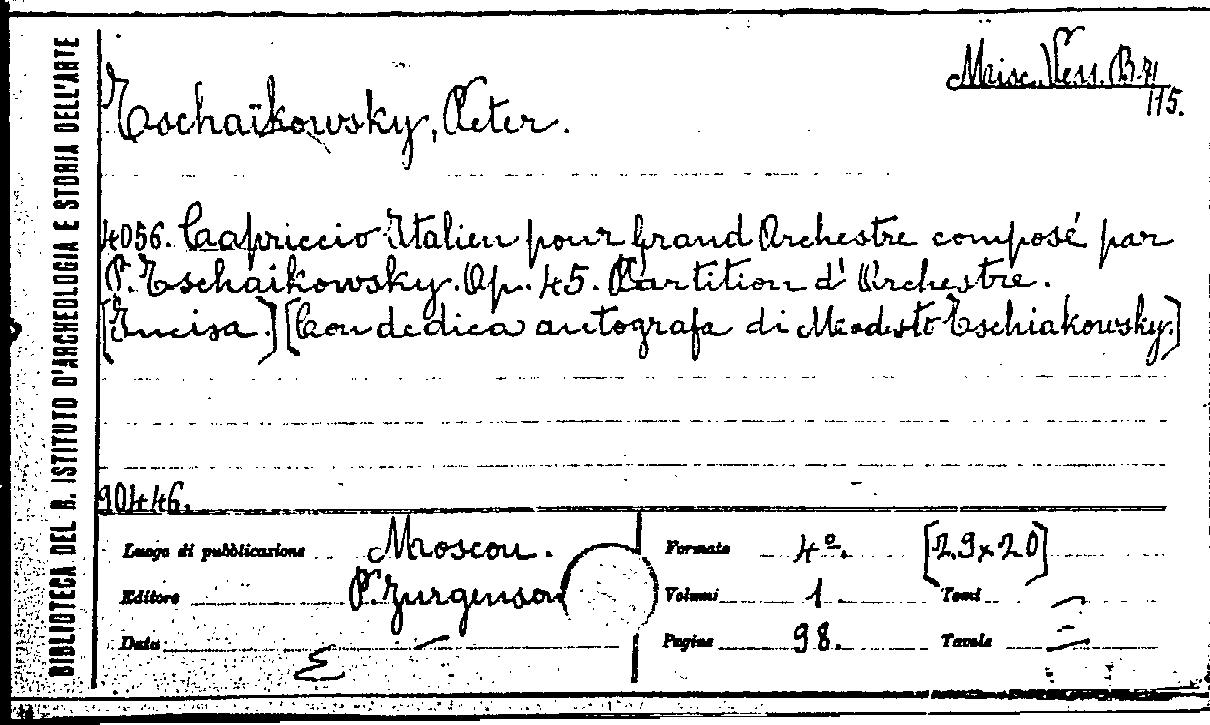 BIBLIOTECA DEL R. ISTITUTO D'ARCHEOLOGIA E STORIA DELL'ARTE
Misc. Vess. B. 71
115.
Tschaïkowsky, Peter.
4056. Capriccio Italien pour Grand Orchestre composé par
P. Tschaikowsky. Op. 45. Partition d'Orchestre.
[Incisa.] [Con dedica autografa di Modesto Tschiakowsky.]
90446.
Luogo di pubblicazione Moscou.
Editore P. Jurgenson
Data —
Formato 4º. [29x20]
Volumi 1. Tomi —
Pagine 98. Tavole —